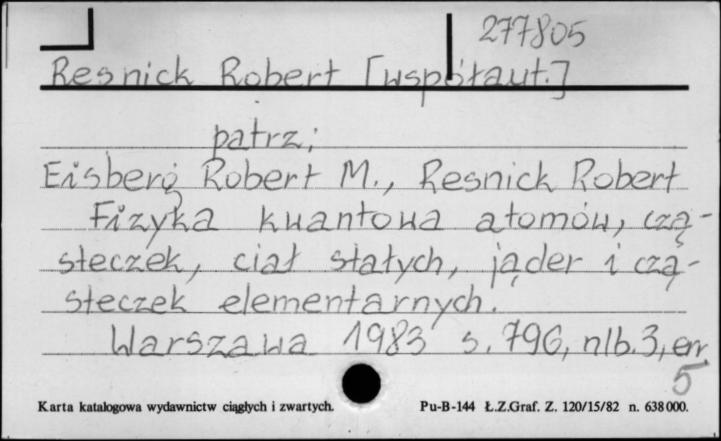 277805
Resnick Robert [współaut.]
patrz:
Eisberg Robert M., Resnick Robert
Fizyka kwantowa atomów, czą-
steczek, ciał stałych, jąder i czą-
steczek elementarnych.
Warszawa 1983 s. 796, nlb. 3, err
5
Karta katalogowa wydawnictw ciągłych i zwartych. Pu-B-144 Ł.Z.Graf. Z. 120/15/82 n. 638000.